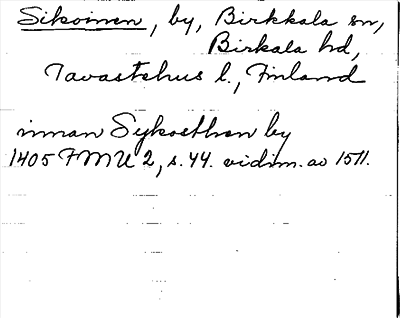 Sikoinen, by, Birkkala sn,
Birkala hd,
Tavastehus l., Finland
innan Sykoethen by
1405 FMU 2, s. 44. vidim. av 1511.